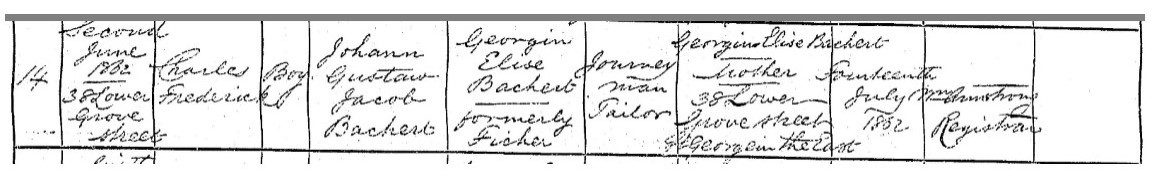 14
Second
June
1862
38 Lower
Grove
street
Charles
Frederick
Boy
Johann
Gustav
Jacob
Bachert
Georgin
Elise
Bachert
formerly
Ficher
Journey
man
Tailor
Georgin Elise Bachert
Mother
38 Lower
Grove street
St George in the East
Fourteenth
July
1862
Wm Armstrong
Registrar